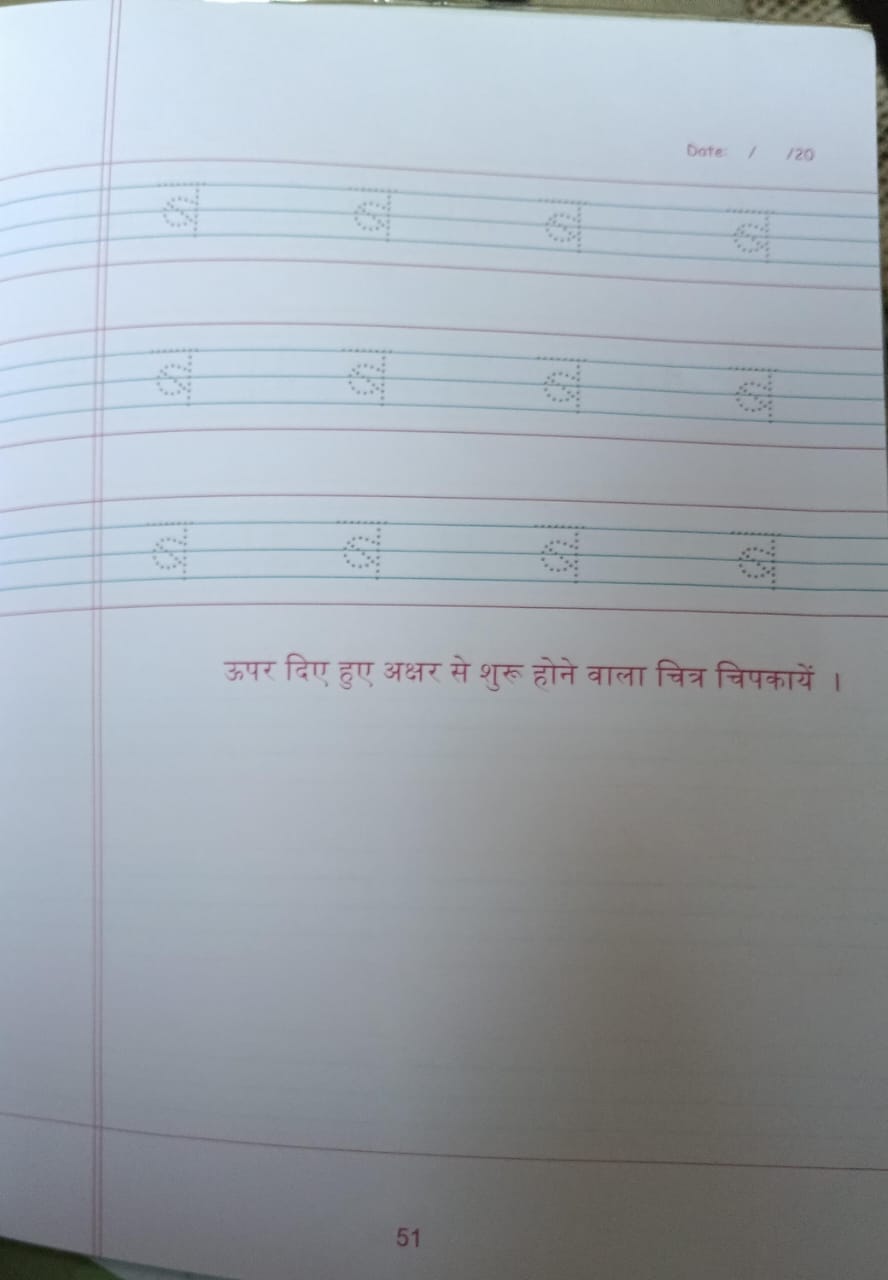 Date: / /20
क्ष क्ष क्ष क्ष
क्ष क्ष क्ष क्ष
क्ष क्ष क्ष क्ष
ऊपर दिए हुए अक्षर से शुरू होने वाला चित्र चिपकायें ।
51